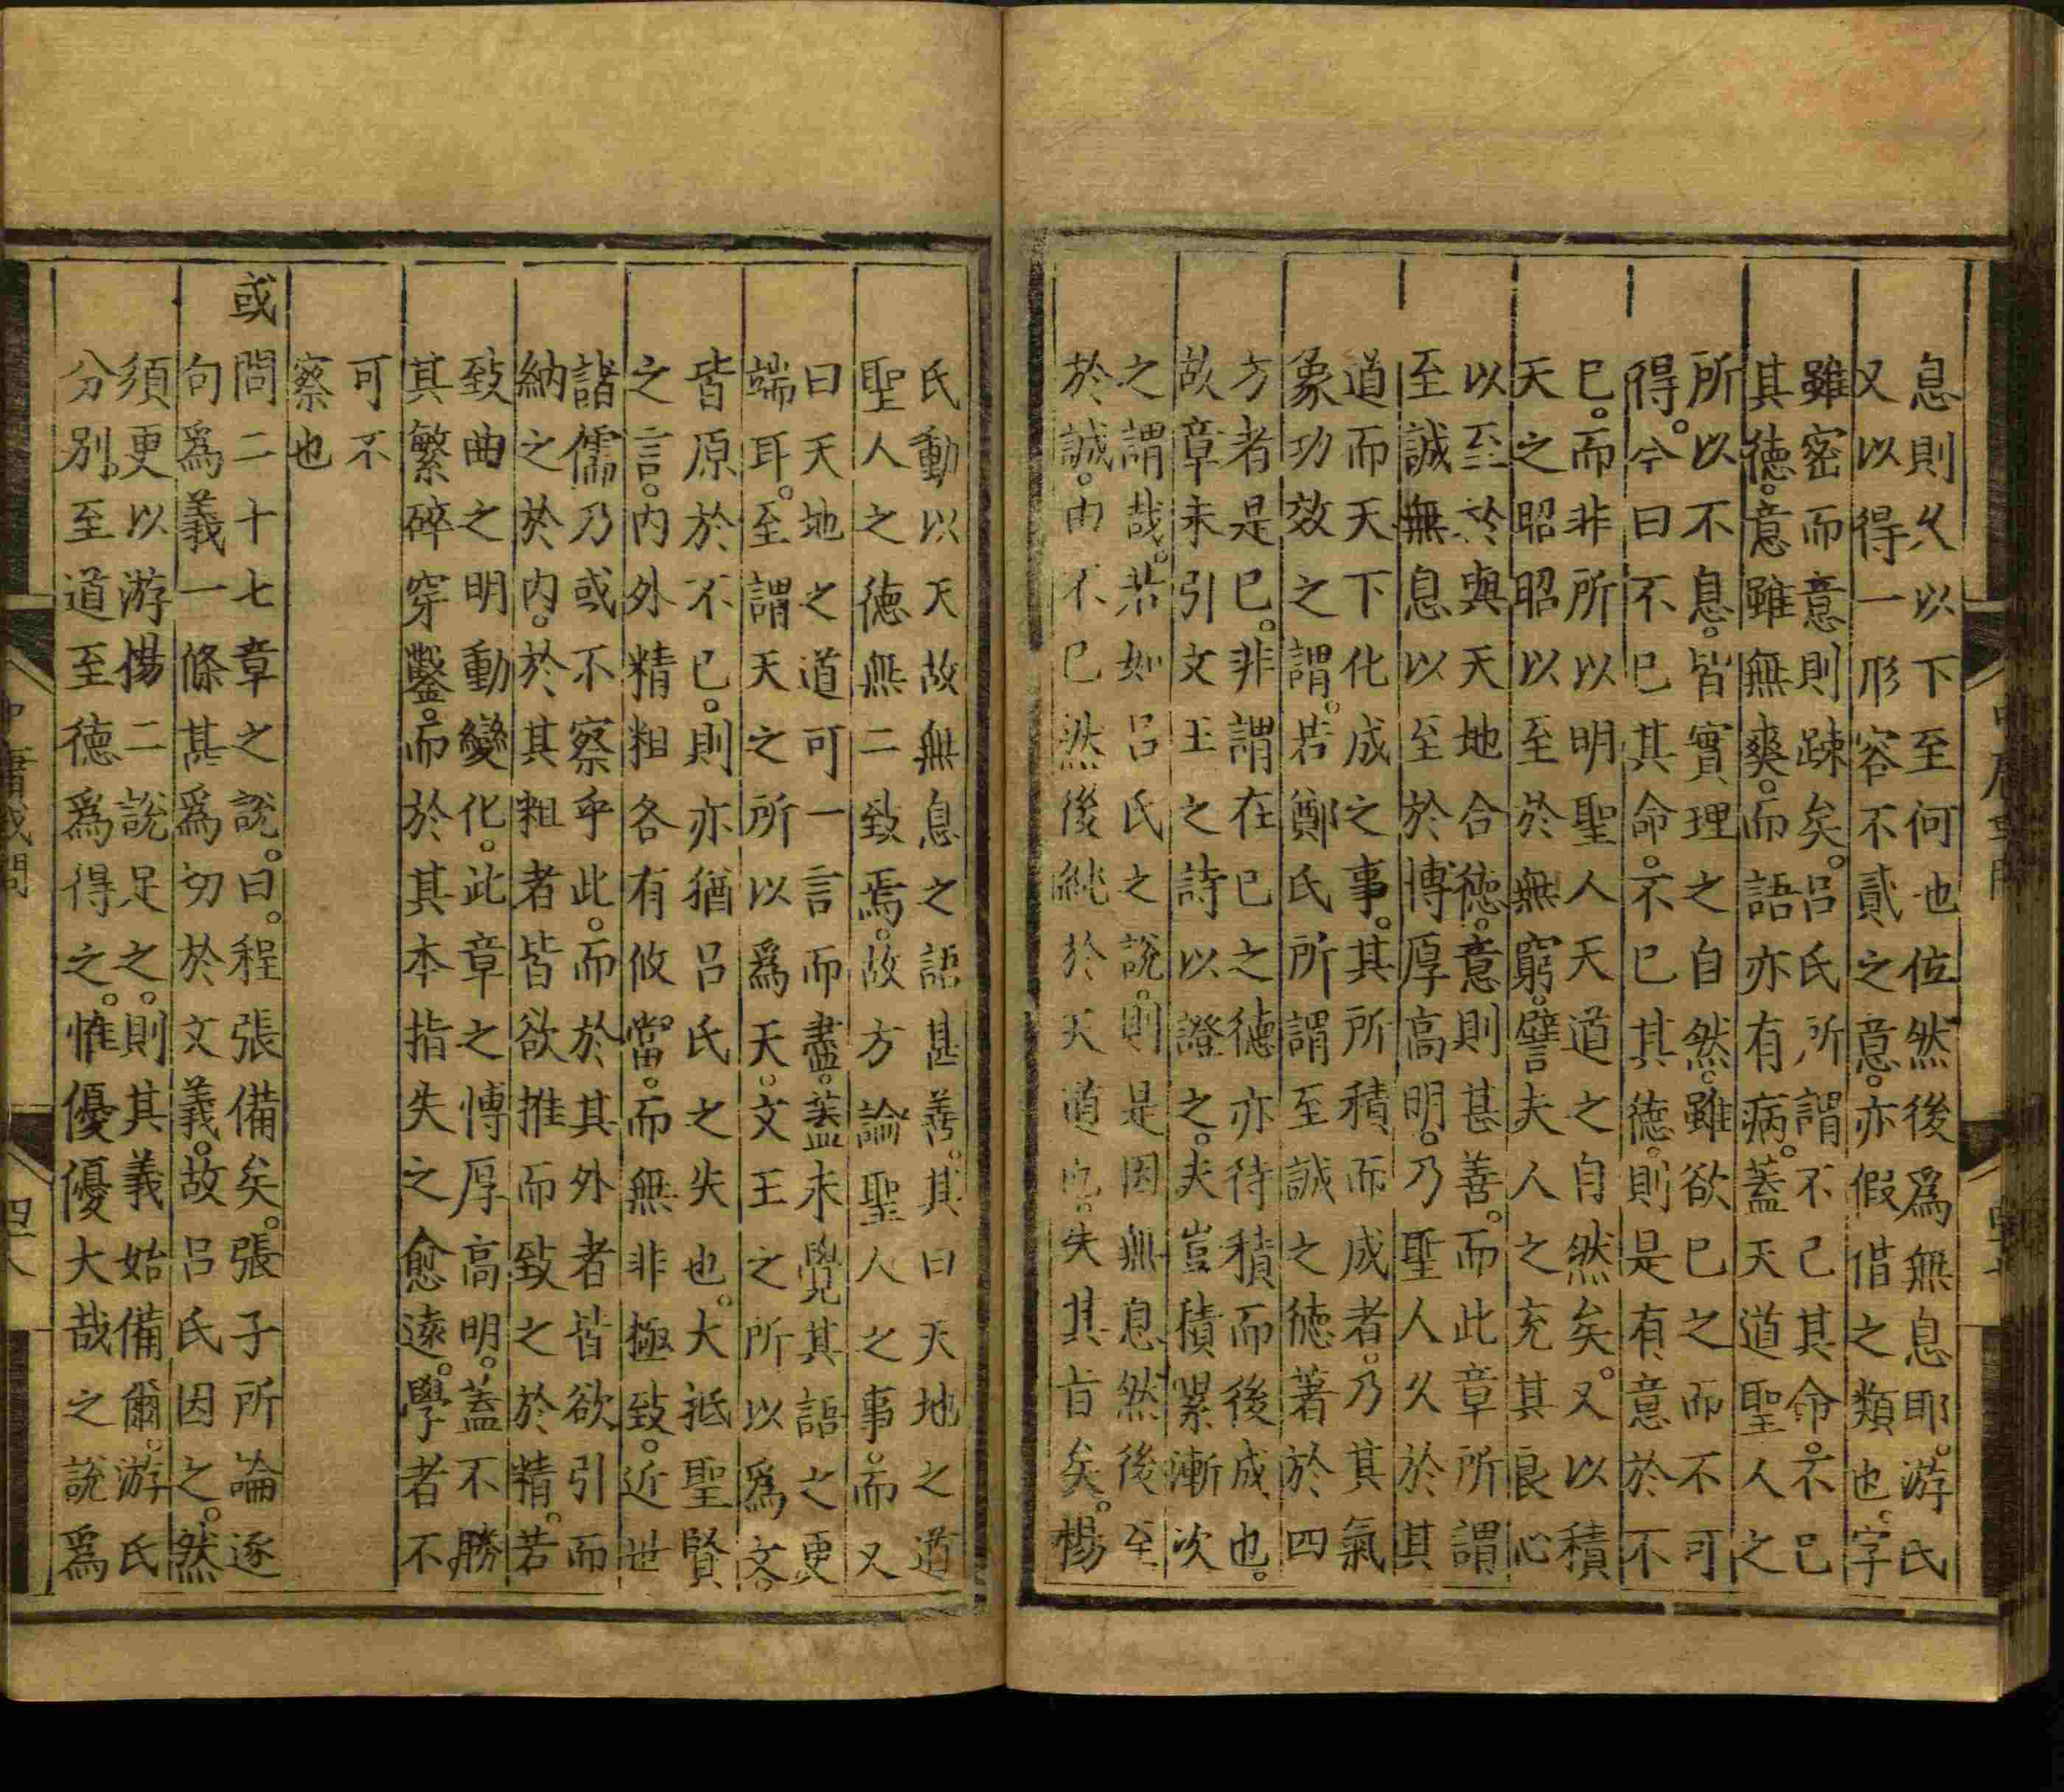 息則久以下至何也位然後爲無息耶。游氏
又以得一形容不貳之意。亦假借之類也。字
雖密而意則疎矣。呂氏所謂不已其命。不已
其德。意雖無爽。而語亦有病。蓋天道聖人之
所以不息。皆實理之自然。雖欲已之而不可
得。今曰不已其命。不已其德。則是有意於不
已。而非所以明聖人天道之自然矣。又以積
天之昭昭以至於無窮。譬夫人之充其良心
以至於與天地合德。意則甚善。而此章所謂
至誠無息以至於博厚高明。乃聖人久於其
道而天下化成之事。其所積而成者。乃其氣
象功效之謂。若鄭氏所謂至誠之德著於四
方者是已。非謂在已之德亦待積而後成也。
故章末引文王之詩以證之。夫豈積累漸次
之謂哉。若如呂氏之說。則是因無息然後至
於誠。由不已然後純於天道也。失其旨矣。楊
氏動以天故無息之語甚善。其曰天地之道
聖人之德無二致焉。故方論聖人之事。而又
曰天地之道可一言而盡。蓋未覺其語之更
端耳。至謂天之所以爲天。文王之所以爲文。
皆原於不已。則亦猶呂氏之失也。大抵聖賢
之言。內外精粗各有攸當。而無非極致。近世
諸儒乃或不察乎此。而於其外者皆欲引而
納之於內。於其粗者皆欲推而致之於精。若
致曲之明動變化。此章之博厚高明。蓋不勝
其繁碎穿鑿。而於其本指失之愈遠。學者不
可不
察也
或問二十七章之說。曰。程張備矣。張子所論逐
句爲義一條甚爲切於文義。故呂氏因之。然
須更以游楊二說足之。則其義始備爾。游氏
分別。至道至德爲得之。惟優優大哉之說爲
中庸或問
四八